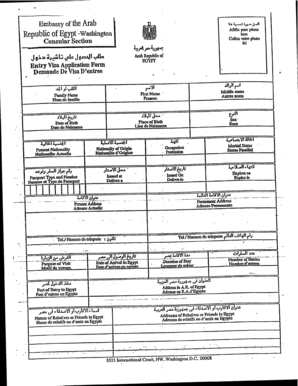 Embassy of the Arab
Republic of Egypt - Washington
Consular Section
جمهورية مصر العربية
Arab Republic of
EGYPT
Affix your photo
here
Collez votre photo
ici
طلب الحصول على تأشيرة دخول
Entry Visa Application Form
Demande De Visa D'entree
اللقب
Family Name
Nom de famille
الاسم
First Name
Prenom
اسم الوالد
Middle name
Autres noms
تاريخ الميلاد
Date of Birth
Date de Naissance
محل الميلاد
Place of Birth
Lieu de Naissance
النوع
Sex
Sexe
الجنسية الحالية
Present Nationality
Nationalite Actuelle
الجنسية الاصلية
Nationality of Origin
Nationalite d'Origine
المهنة
Occupation
Profession
الحالة الاجتماعية
Marital Status
Status Familial
رقم جواز السفر ونوعه
Passport Type and Number
Numero et Type du Passeport
محل الاصدار
Issued at
Delivre a
تاريخ الاصدار
Issued On
Delivre le
انتهاء الصلاحية
Expires on
Expire le
عنوان الاقامة
Present Address
Adresse Actuelle
عنوان الاقامة الدائمة
Permanent Address
Adresse Permanente
Tel./ Numero de telepone
Tel./ Numero de telepone
الغرض من الزيارة
Purpose of Visit
Motif du voyage
تاريخ الوصول الى مصر
Date of Arrival in Egypt
Date d'arrivee en egypte
مدة الاقامة بمصر
Duration of Stay
Longueur du sejour
عدد السفرات
Number of Entries
Nombre d'entrees
منفذ الدخول لمصر
Port of Entry in Egypt
Port d'entree en Egypte
العنوان فى جمهورية مصر العربية
Address in A.R. of Egypt
Adresse en R.A. d'Egypte
اسماء الاقارب او الاصدقاء فى مصر
Names of Relatives or Friends in Egypt
Noms de relatifs ou d'amis en Egypte
عنوان الاقارب او الاصدقاء فى جمهورية مصر العربية
Addresses of Relatives or Friends in Egypt
Adresses de relatifs ou d'amis en Egypte
3521 International Court, NW, Washington D.C. 20008